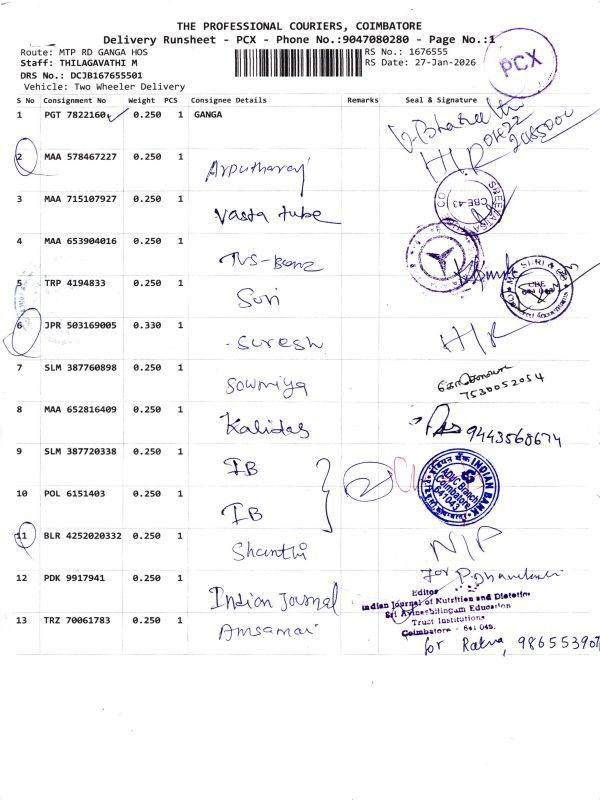 THE PROFESSIONAL COURIERS, COIMBATORE
Delivery Runsheet - PCX - Phone No.:9047080280 - Page No.:1
Route: MTP RD GANGA HOS
RS No.: 1676555
Staff: THILAGAVATHI M
RS Date: 27-Jan-2026
DRS No.: DCJB167655501
Vehicle: Two Wheeler Delivery
PCX
S No Consignment No Weight PCS Consignee Details Remarks Seal & Signature
1 PGT 7822160 0.250 1 GANGA
2 MAA 578467227 0.250 1 Arputharaj H/R
3 MAA 715107927 0.250 1 Vasta tube CBE-43
4 MAA 653904016 0.250 1 TVS-Benz
5 TRP 4194833 0.250 1 Suri
6 JPR 503169005 0.330 1 Suresh H/R
7 SLM 387760898 0.250 1 Sowmiya
7530052054
8 MAA 652816409 0.250 1 Kalidas 9443568674
9 SLM 387720338 0.250 1 IB
2
INDIAN BANK
ADUC Branch
Coimbatore
641043
10 POL 6151403 0.250 1 IB
11 BLR 4252020332 0.250 1 Shanthi N/P
12 PDK 9917941 0.250 1 Indian Journal
For
Editor
Indian Journal of Nutrition and Dietetics
Sri Avinashilingam Education
Trust Institutions
Coimbatore - 641 043.
13 TRZ 70061783 0.250 1 Amsamani
for Ratna, 986553907